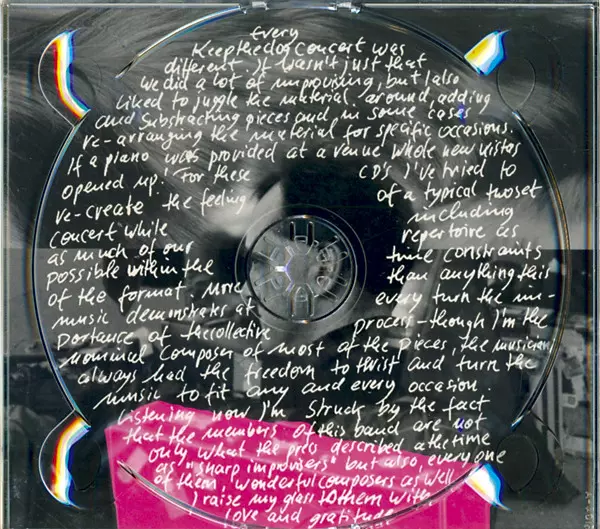 Every
Keepthedog Concert was
different. It wasn't just that
we did a lot of improvising, but I also
liked to juggle the material around, adding
and substracting pieces and, in some cases
re-arranging the material for specific occasions.
If a piano was provided at a venue whole new vistas
opened up! For these CD's I've tried to
re-create the feeling of a typical twoset
concert while including
as much of our repertoire as
possible within the time constraints
of the format. More than anything this
music demonstrates at every turn the im-
portance of the collective process - though I'm the
nominal composer of most of the pieces, the musicians
always had the freedom to twist and turn the
music to fit any and every occasion.
Listening now I'm struck by the fact
that the members of this band are not
only what the press described at the time
as "sharp improvisers" but also, everyone
of them, wonderful composers as well.
I raise my glass to them with
love and gratitude